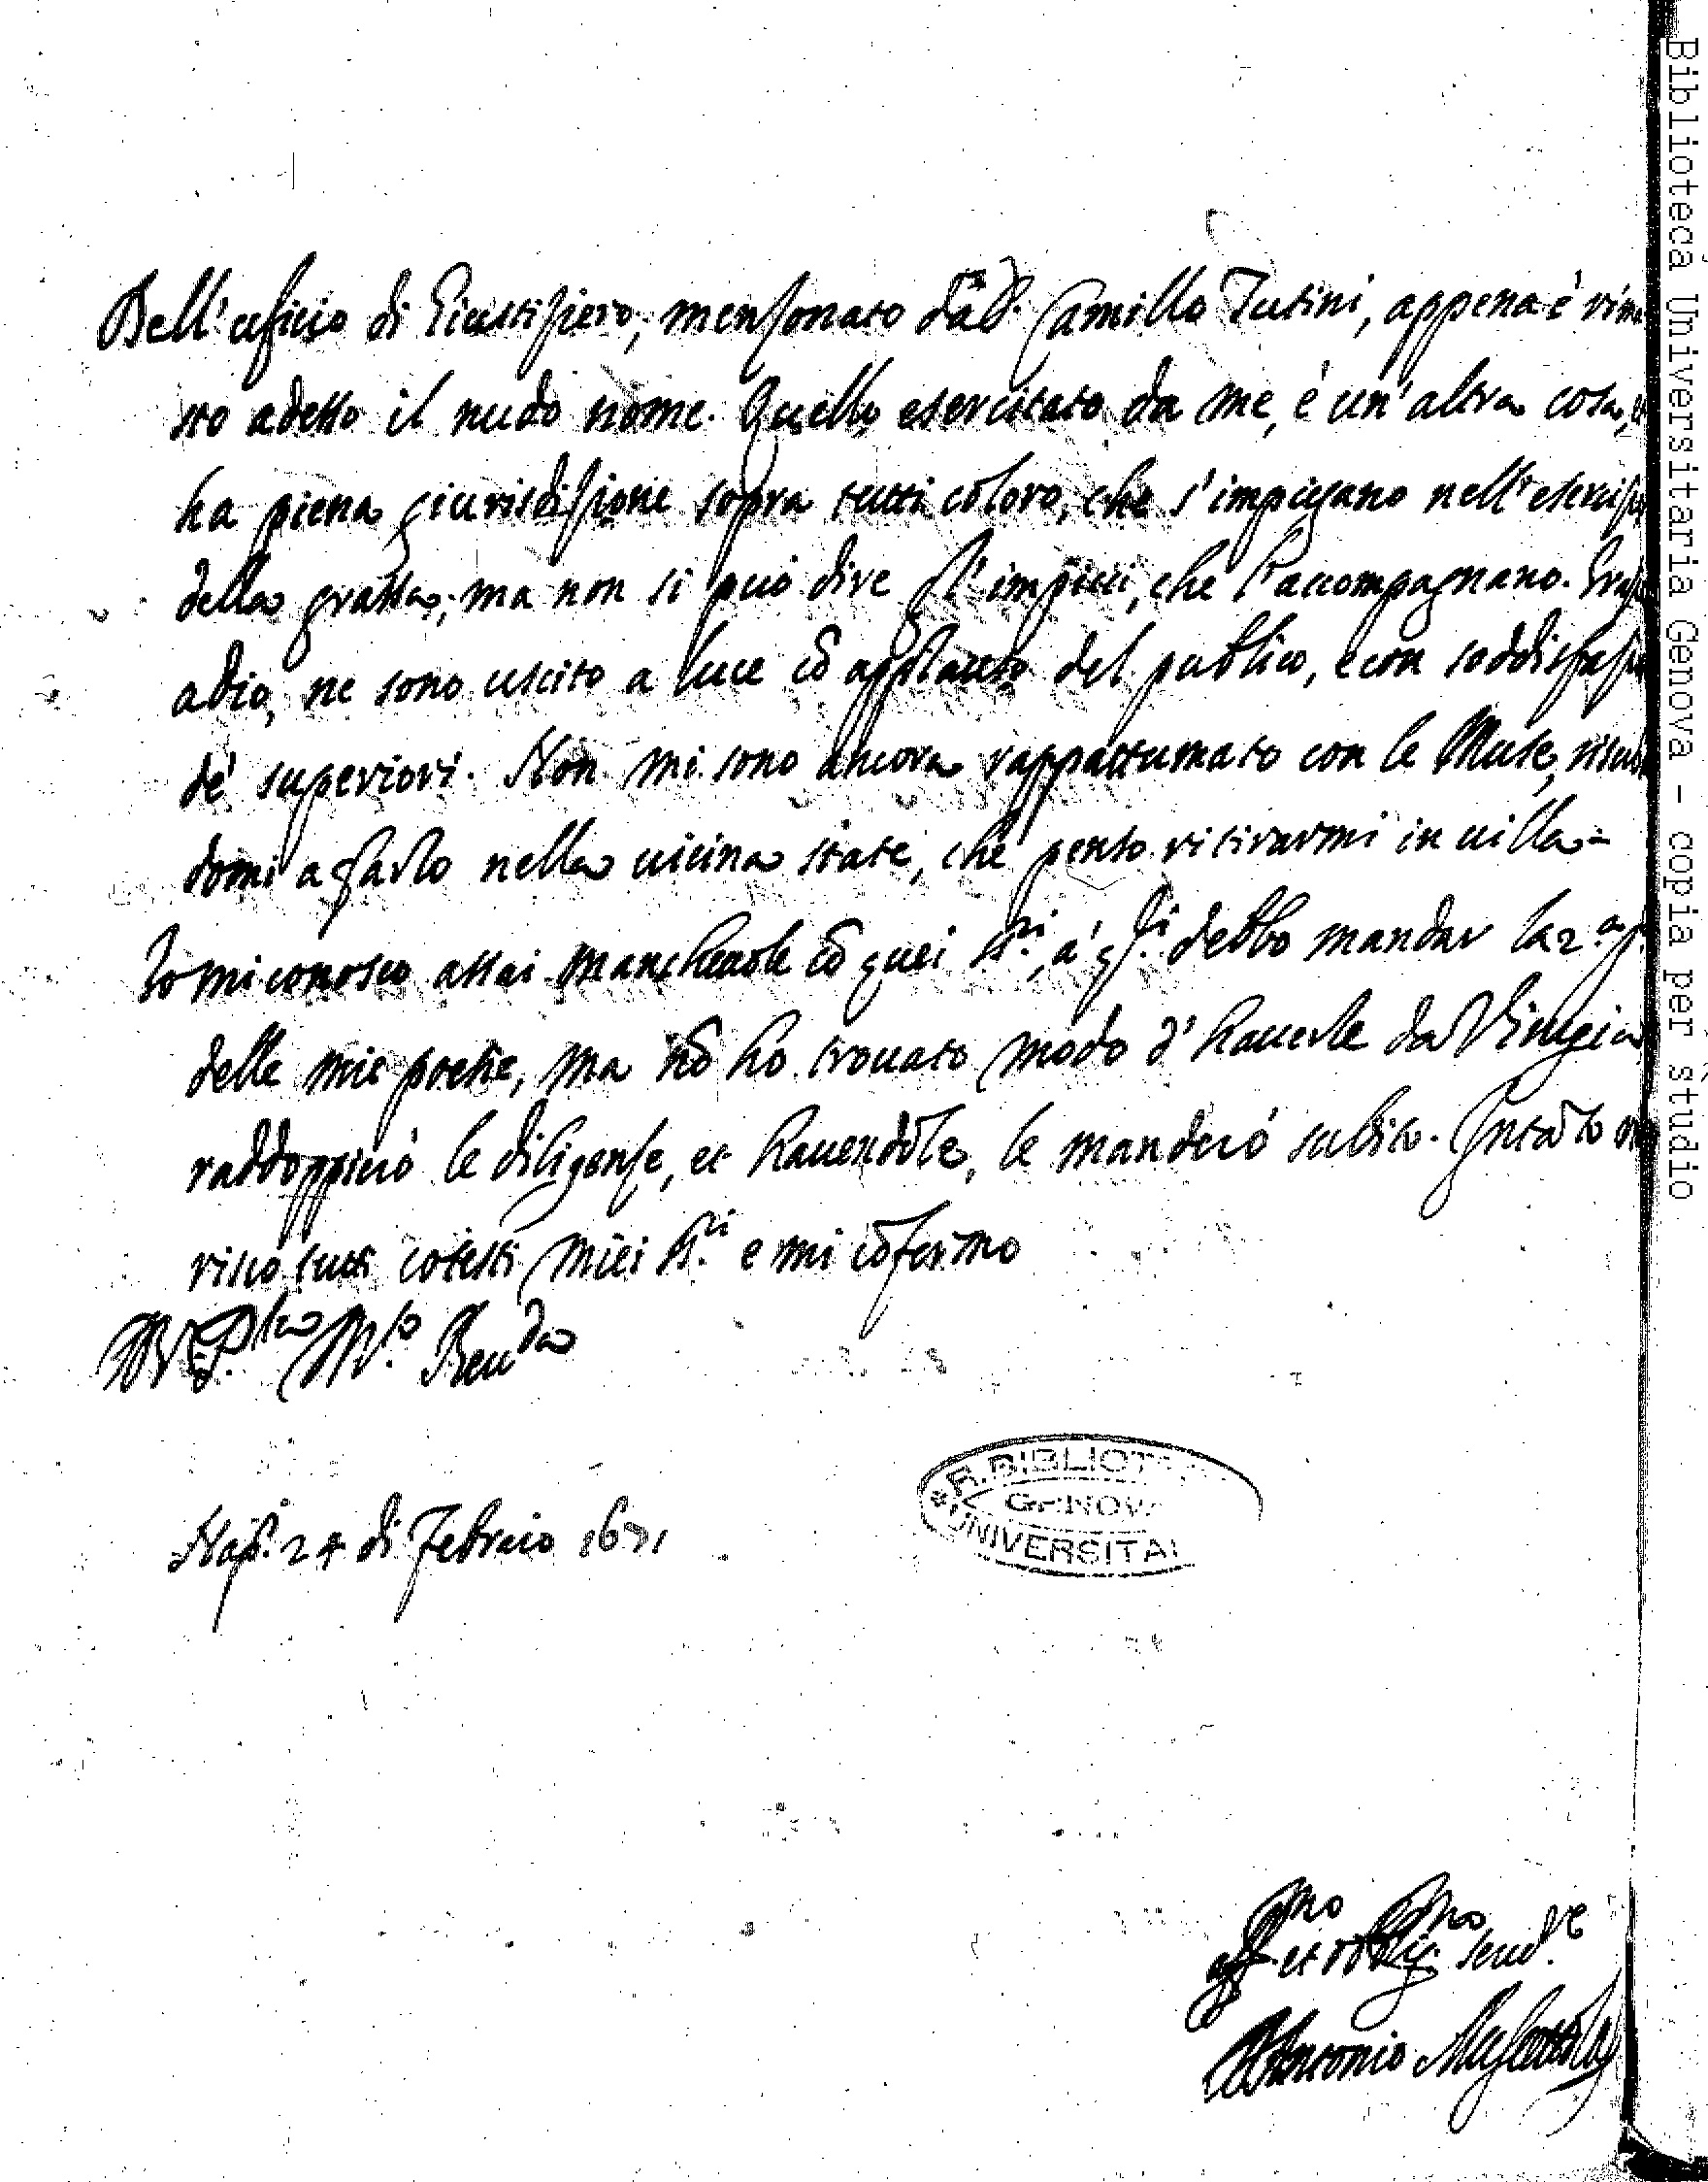 Dell'uficio di Giustiziero, menzonato dal Camillo Tutini, appena è rima
sto adesso il nudo nome. Quello esercitato da me, è un'altra cosa,
ha piena giurisdizione sopra tutti coloro, che s'impiegano nell'eserciz
della grassa; ma non si può dire gl'impicci, che l'accompagnano. Graz
adio, ne sono uscito a luce cō applauso del publico, e con soddisfaz
de' superiori. Non mi sono ancora rappattumato con le Muse,
domi a farlo nella vicina state, che penso ritirarmi in villa-
Io mi conosco assai mancheuole cō quei SSri, a' qli debbo mandar la 2a
delle mie poesie, ma nō ho trouato modo d'hauerle da Vinegia
raddoppierò le diligenze, et hauendole, le manderò subito. Intāto
risco tutti cotesti miei SSri e mi cōfermo
Di V. P. Mto Reuda
Nap. 24 di Febraio 1671
affmo et obligmo serudre
Antonio Muscettola
R. BIBLIOT
GENOVA
UNIVERSITA
Biblioteca Universitaria Genova - copia per studio